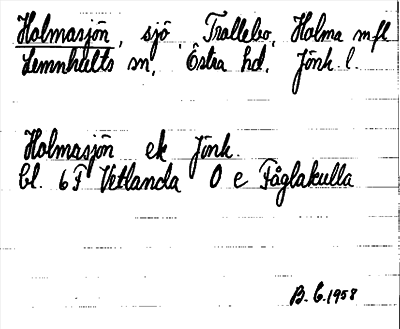 Holmasjön, sjö, Trollebo, Holma mfl
Lemnhults sn, Östra hd, Jönk l.
Holmasjön ek Jönk.
bl. 6F Vetlanda 0 e Fåglakulla
B. G. 1958